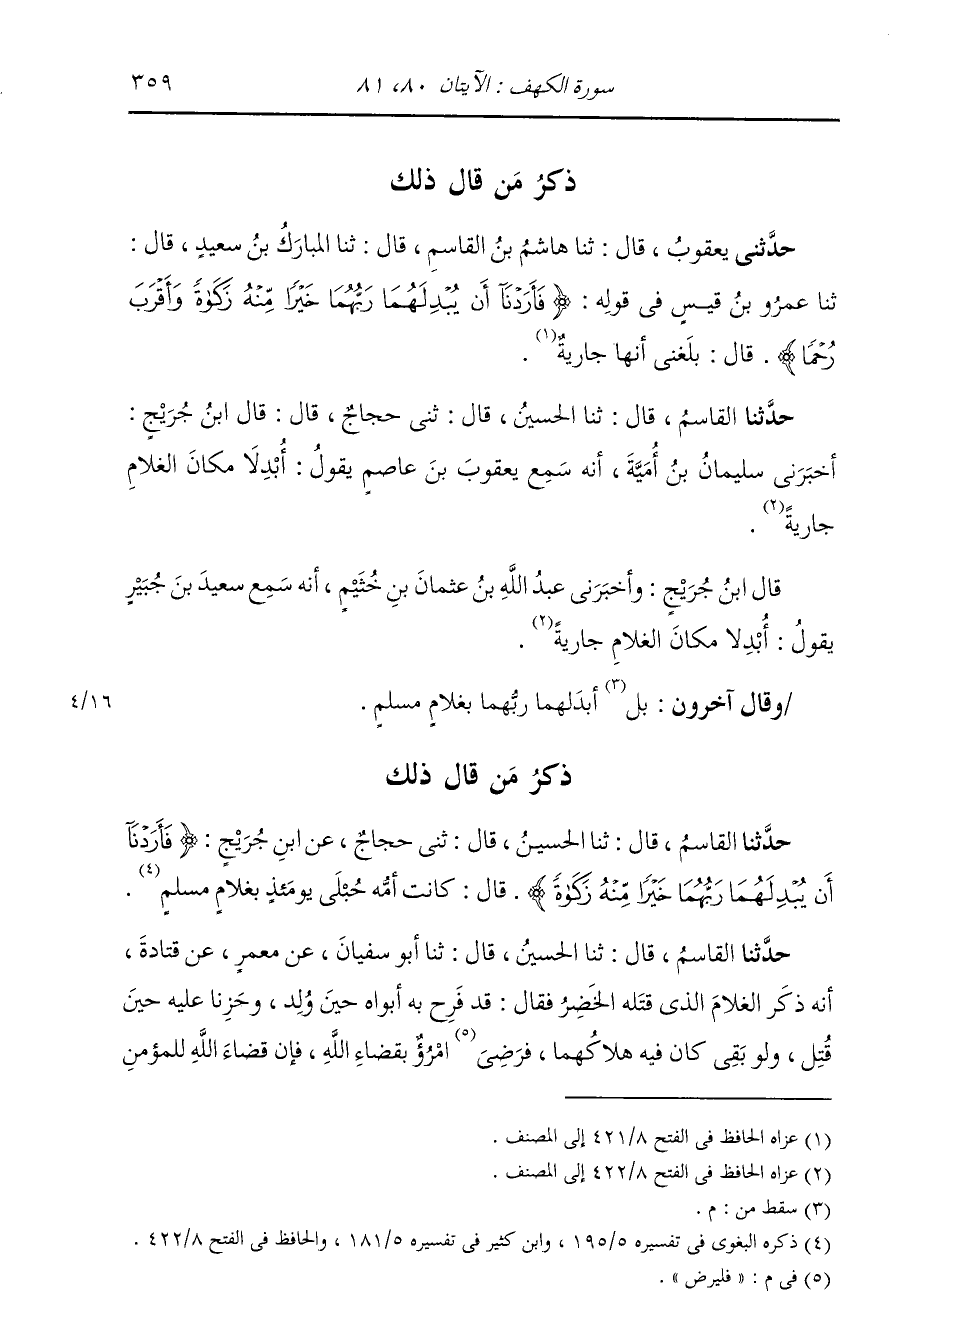 سورة الكهف : الآيتان ٨٠، ٨١ ٣٥٩
ذكرُ مَن قال ذلك
حدَّثنى يعقوبُ ، قال : ثنا هاشمُ بنُ القاسمِ ، قال : ثنا المبارَكُ بنُ سعيدٍ ، قال :
ثنا عمرُو بنُ قيسٍ فى قولِه : ﴿ فَأَرَدْنَآ أَن يُبْدِلَهُمَا رَبُّهُمَا خَيْرًا مِّنْهُ زَكَوٰةً وَأَقْرَبَ
رُحْمًا ﴾ . قال : بلَغنى أنها جاريةٌ(١) .
حدَّثنا القاسمُ ، قال : ثنا الحسينُ ، قال : ثنى حجاجٌ ، قال : قال ابنُ جُرَيْجٍ :
أخبَرَنى سليمانُ بنُ أُمَيَّةَ ، أنه سَمِع يعقوبَ بنَ عاصمٍ يقولُ : أُبْدِلَا مكانَ الغلامِ
جاريةً(٢) .
قال ابنُ جُرَيْجٍ : وأخبَرَنى عبدُ اللَّهِ بنُ عثمانَ بنِ خُثَيْمٍ ، أنه سَمِع سعيدَ بنَ جُبَيْرٍ
يقولُ : أُبْدِلا مكانَ الغلامِ جاريةً(٢) .
/وقال آخرون : بل(٣) أبدَلهما ربُّهما بغلامٍ مسلمٍ . ٤/١٦
ذكرُ مَن قال ذلك
حدَّثنا القاسمُ ، قال : ثنا الحسينُ ، قال : ثنى حجاجٌ ، عن ابنِ جُرَيْجٍ : ﴿ فَأَرَدْنَآ
أَن يُبْدِلَهُمَا رَبُّهُمَا خَيْرًا مِّنْهُ زَكَوٰةً ﴾ . قال : كانت أمُّه حُبْلَى يومَئذٍ بغلامٍ مسلمٍ(٤) .
حدَّثنا القاسمُ ، قال : ثنا الحسينُ ، قال : ثنا أبو سفيانَ ، عن معمرٍ ، عن قتادةَ ،
أنه ذكَر الغلامَ الذى قتَله الخَضِرُ فقال : قد فَرِح به أبواه حينَ وُلِد ، وحَزِنا عليه حينَ
قُتِل ، ولو بَقِى كان فيه هلاكُهما ، فرَضِىَ(٥) امْرُؤٌ بقضاءِ اللَّهِ ، فإن قضاءَ اللَّهِ للمؤمنِ
(١) عزاه الحافظ فى الفتح ٤٢١/٨ إلى المصنف .
(٢) عزاه الحافظ فى الفتح ٤٢٢/٨ إلى المصنف .
(٣) سقط من : م .
(٤) ذكره البغوى فى تفسيره ١٩٥/٥ ، وابن كثير فى تفسيره ١٨١/٥ ، والحافظ فى الفتح ٤٢٢/٨ .
(٥) فى م : « فليرض » .